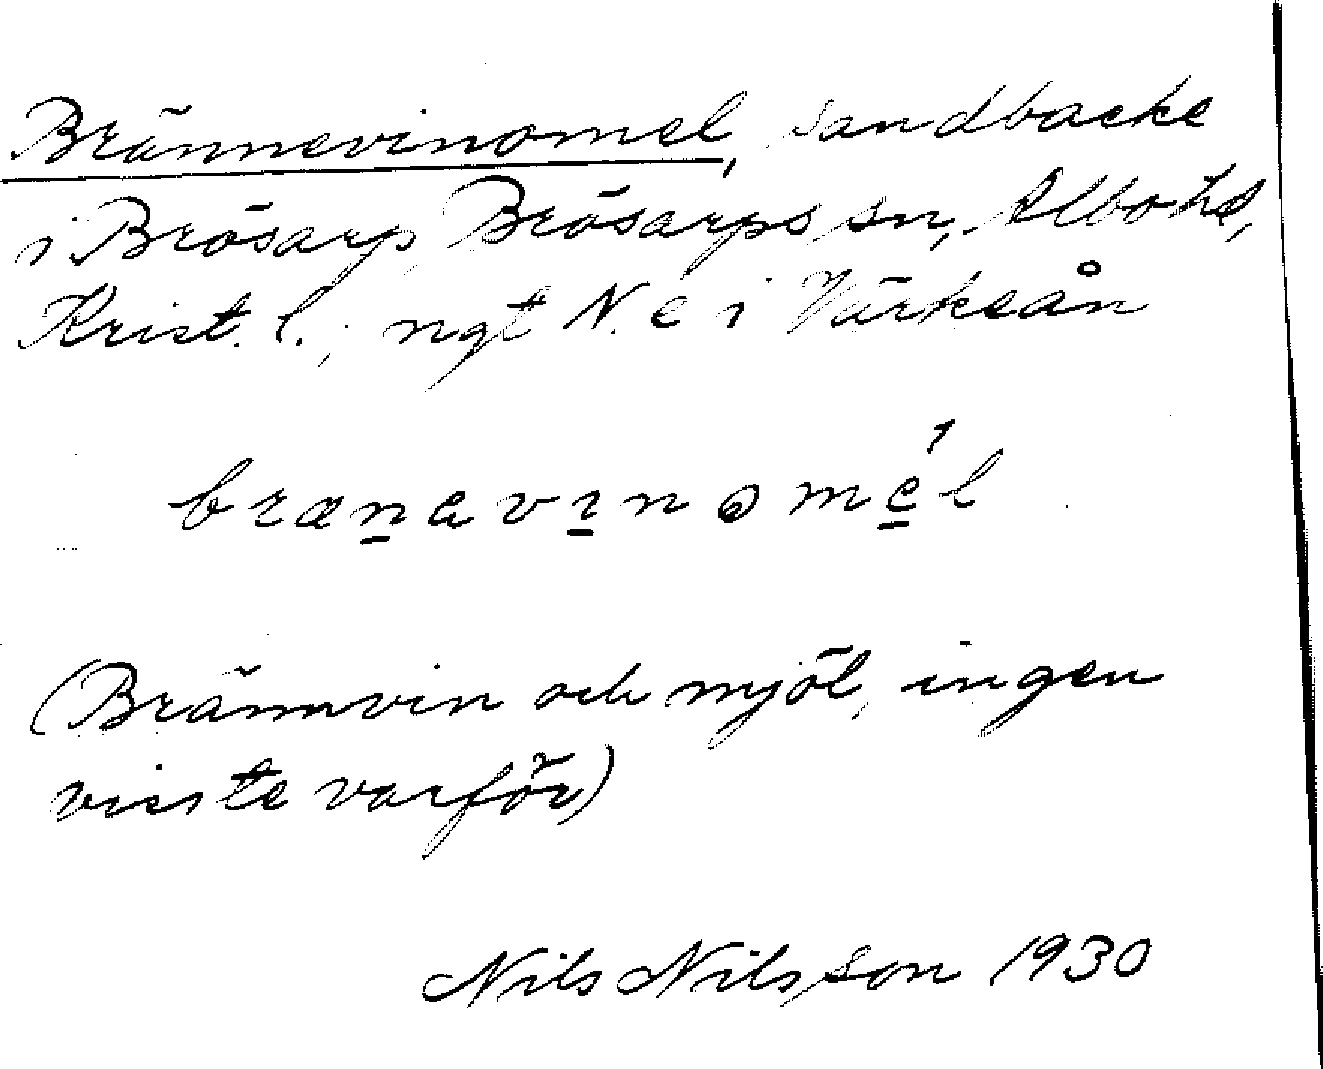 Brännevinomel, sandbacke
i Brösarp, Brösarps sn, Albo hd,
Krist. l., ngt N. e i Värkeån
brænavinomél
(Brännvin och mjöl, ingen
visste varför)
Nils Nilsson 1930